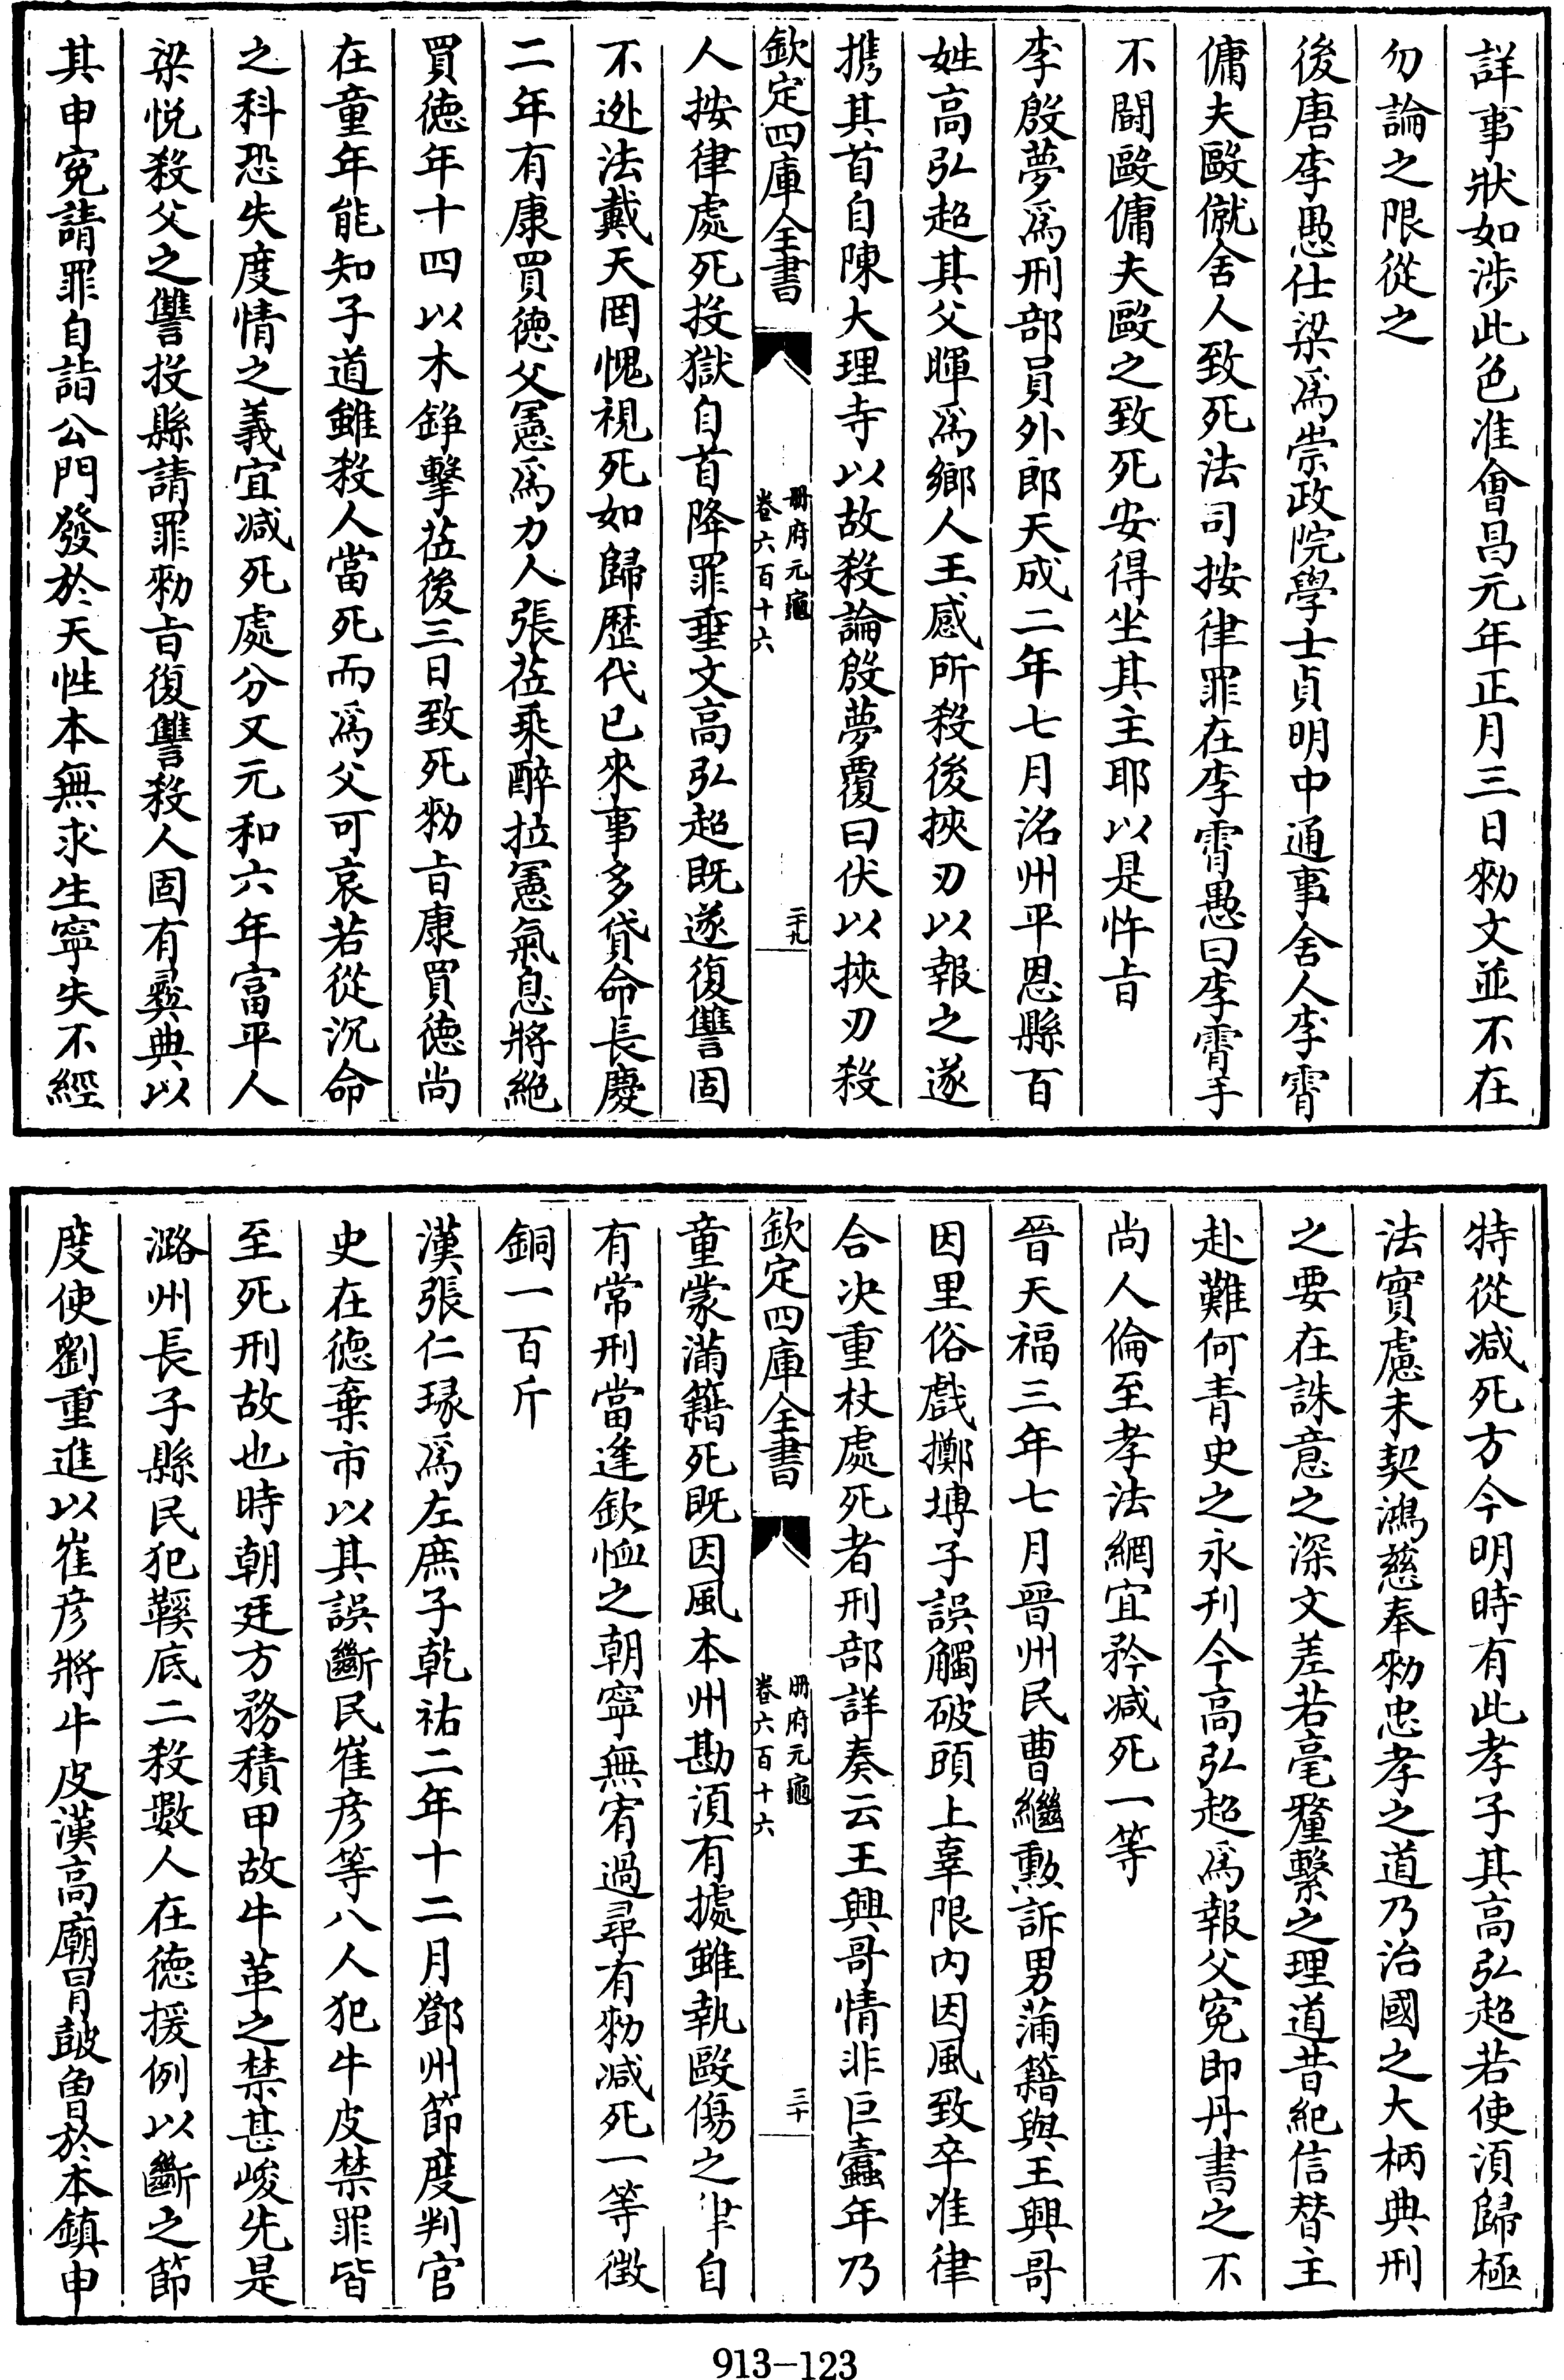 詳事狀如涉此色准會昌元年正月三日勑文並不在
勿論之限從之
後唐李愚仕梁爲崇政院學士貞明中通事舍人李霄
傭夫毆僦舍人致死法司按律罪在李霄愚曰李霄手
不鬬毆傭夫毆之致死安得坐其主耶以是忤㫖
李殷夢爲刑部員外郎天成二年七月洺州平恩縣百
姓高弘超其父暉爲鄉人王感所殺後挾刃以報之遂
携其首自陳大理寺以故殺論殷夢覆曰伏以挾刃殺
欽定四庫全書
冊府元龜
卷六百十六
二十九
人按律處死投獄自首降罪垂文高弘超既遂復讐固
不逃法戴天罔愧視死如歸歷代已來事多貸命長慶
二年有康買德父憲爲力人張莅乘醉拉憲氣息將絶
買德年十四以木錚擊莅後三日致死勑㫖康買德尚
在童年能知子道雖殺人當死而爲父可哀若從沉命
之科恐失度情之義宜减死處分又元和六年富平人
梁悦殺父之讐投縣請罪勑㫖復讐殺人固有彜典以
其申寃請罪自詣公門發於天性本無求生寧失不經
特從减死方今明時有此孝子其高弘超若使須歸極
法實慮未契鴻慈奉勑忠孝之道乃治國之大柄典刑
之要在誅意之深文差若毫釐繫之理道昔紀信替主
赴難何青史之永刊今高弘超爲報父寃即丹書之不
尚人倫至孝法網宜矜减死一等
晉天福三年七月晉州民曹繼勲訴男蒲籍與王興哥
因里俗戲擲塼子誤觸破頭上辜限内因風致卒准律
合决重杖處死者刑部詳奏云王興哥情非巨蠧年乃
欽定四庫全書
冊府元龜
卷六百十六
三十
童蒙滿籍死既因風本州勘須有據雖執毆傷之律自
有常刑當逢欽恤之朝寧無宥過尋有勑减死一等徵
銅一百斤
漢張仁瑑爲左庶子乾祐二年十二月鄧州節度判官
史在德棄市以其誤斷民崔彦等八人犯牛皮禁罪皆
至死刑故也時朝廷方務積甲故牛革之禁甚峻先是
潞州長子縣民犯鞵底二殺數人在德援例以斷之節
度使劉重進以崔彦將牛皮漢高廟冐鼓曾於本鎮申
913—123